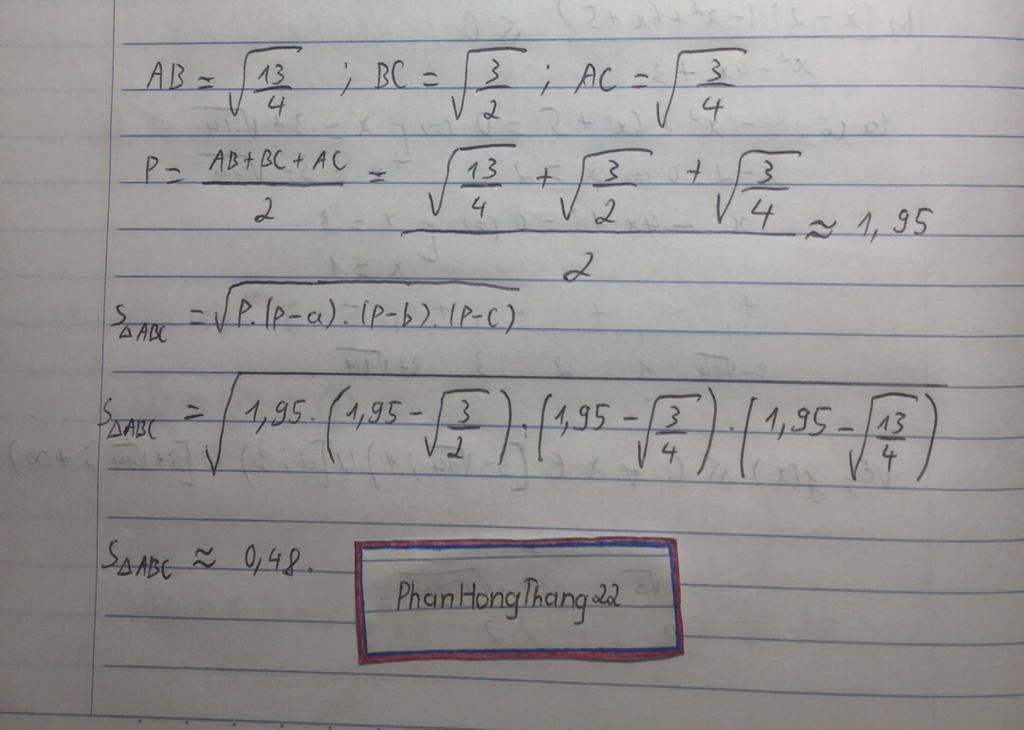 AB = √(13/4) ; BC = √(3/2) ; AC = √(3/4)
P = (AB+BC+AC)/2 = (√(13/4) + √(3/2) + √(3/4))/2 ≈ 1,95
S△ABC = √(P.(P-a).(P-b).(P-c))
S△ABC = √(1,95.(1,95-√(3/2)).(1,95-√(3/4)).(1,95-√(13/4)))
S△ABC ≈ 0,48.
PhanHongThang22